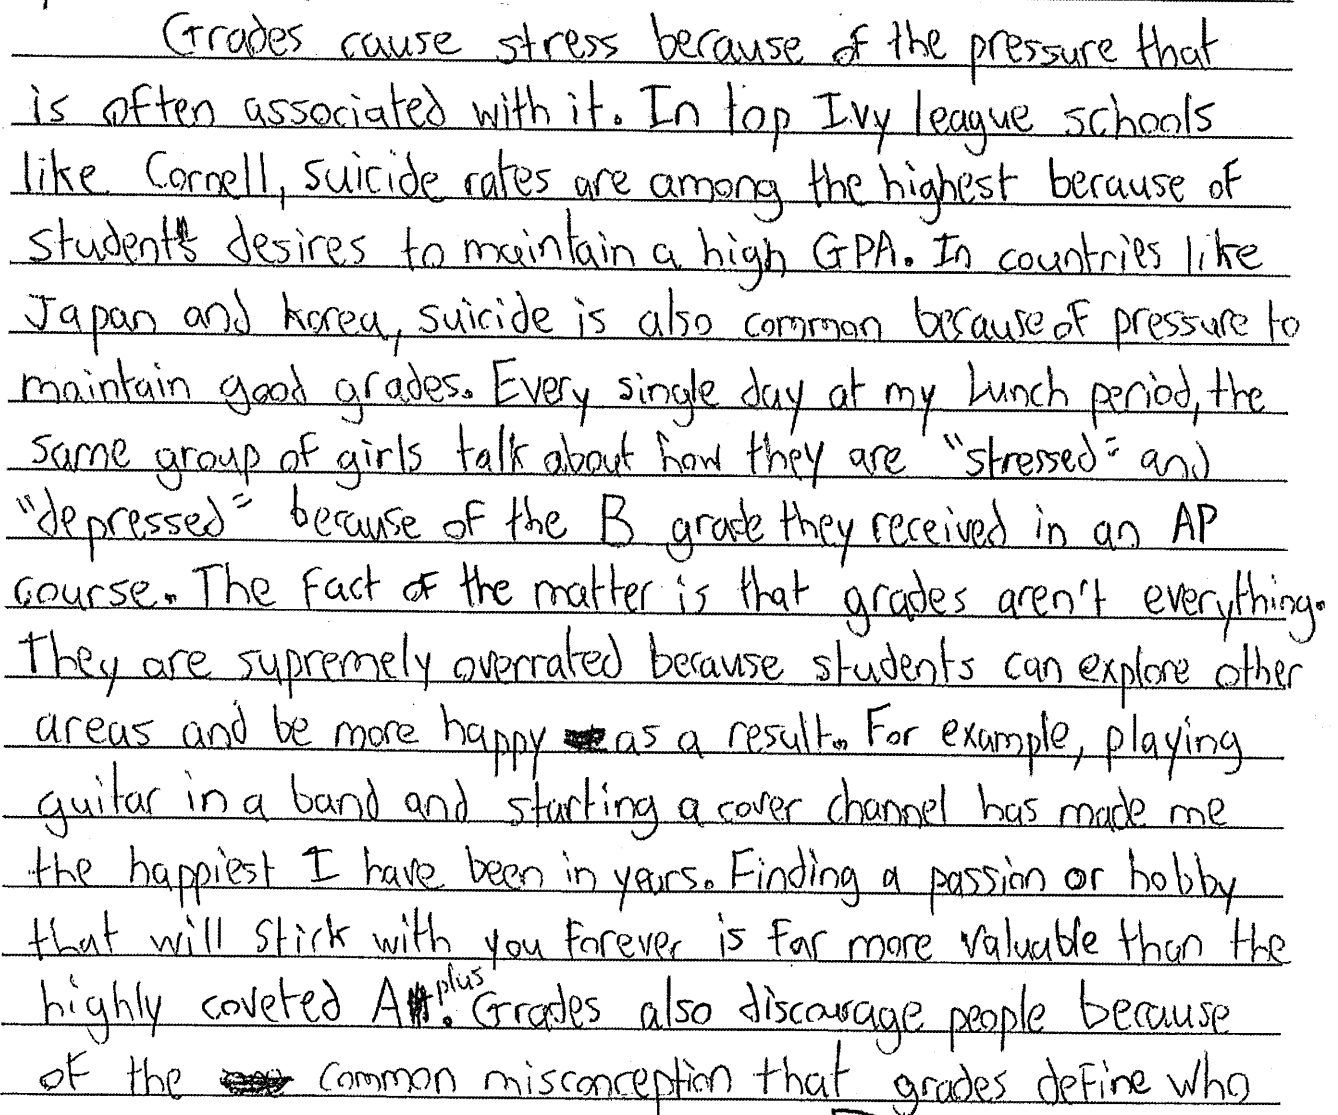 Grades cause stress because of the pressure that
is often associated with it. In top Ivy league schools
like Cornell, suicide rates are among the highest because of
students desires to maintain a high GPA. In countries like
Japan and Korea, suicide is also common because of pressure to
maintain good grades. Every single day at my lunch period, the
same group of girls talk about how they are "stressed" and
"depressed" because of the B grade they received in an AP
course. The fact of the matter is that grades aren't everything.
They are supremely overrated because students can explore other
areas and be more happy as a result. For example, playing
guitar in a band and starting a cover channel has made me
the happiest I have been in years. Finding a passion or hobby
that will stick with you forever is far more valuable than the
highly coveted A plus. Grades also discourage people because
of the common misconception that grades define who